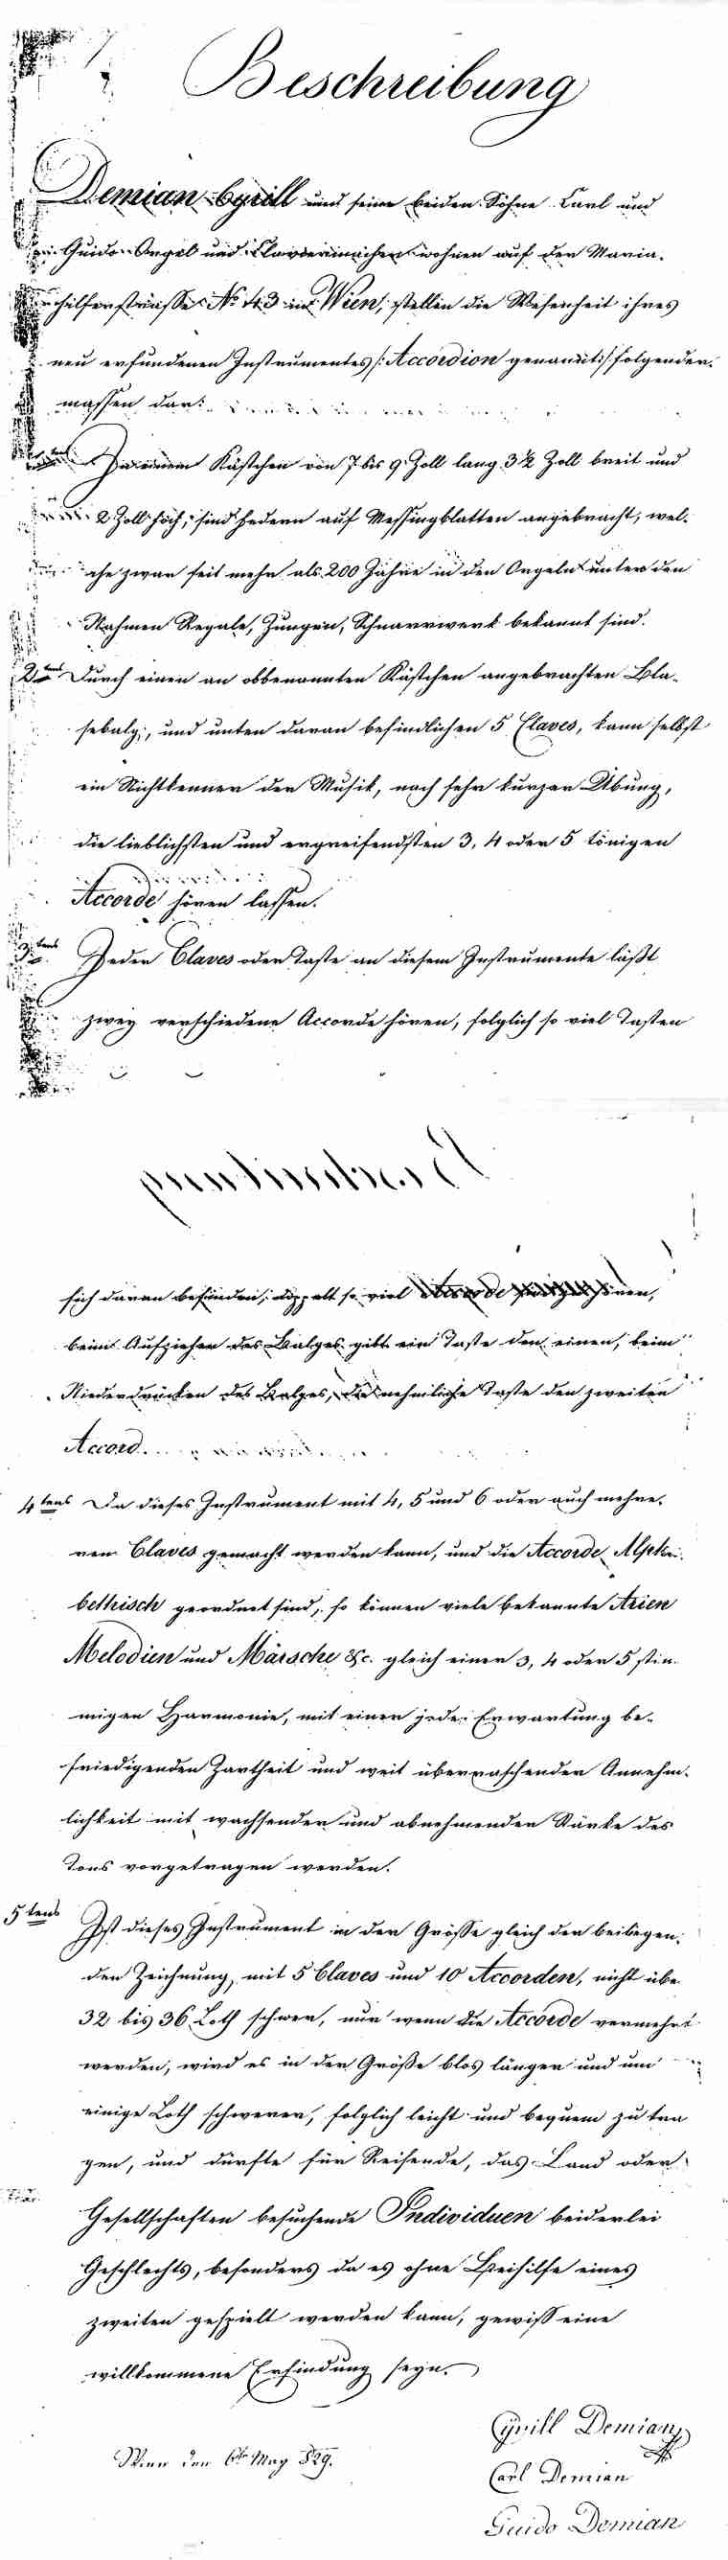 Beschreibung
Demian Cyrill und seine beiden Söhne Carl und
Guido Orgel und Claviermacher wohnen auf der Maria-
hilferstrasse No 43 in Wien, stellen die Wesenheit ihres
neu erfundenen Instrumentes /: Accordion genannt :/ folgender-
massen dar:
In einem Kästchen von 7 bis 9 Zoll lang 3 1/2 Zoll breit und
2 Zoll hoch, sind Federn auf Messingblatten angebracht, wel-
che zwar seit mehr als 200 Jahre in den Orgeln unter den
Nahmen Regale, Zungen, Schnarrwerk bekannt sind.
2tens Durch einen an obbenannten Kästchen angebrachten Bla-
sebalg, und unten daran befindlichen 5 Claves, kann selbst
ein Nichtkenner der Musik, nach sehr kurzer Übung,
die lieblichsten und ergreifendsten 3, 4 oder 5 tönigen
Accorde hören lassen.
3tens Jeder Claves oder Taste an diesem Instrumente läßt
zwey verschiedene Accorde hören, folglich so viel Tasten
Beschreibung
sich daran befinden, doppelt so viel Accorde hören,
beim Aufziehen des Balges gibt ein Taste den einen, beim
Niederdrücken des Balges, die nehmliche Taste den zweiten
Accord.
4tens Da dieses Instrument mit 4, 5 und 6 oder auch mehre-
ren Claves gemacht werden kann, und die Accorde Alpha-
bethisch geordnet sind, so können viele bekannte Arien
Melodien und Märsche &c. gleich einer 3, 4 oder 5 stim-
migen Harmonie, mit einer jede Erwartung be-
friedigenden Zartheit und weit überraschender Annehm-
lichkeit mit wachsender und abnehmender Stärke des
Tons vorgetragen werden.
5tens Ist dieses Instrument in der Grösse gleich der beiliegen-
den Zeichnung, mit 5 Claves und 10 Accorden, nicht über
32 bis 36 Loth schwer, nur wenn die Accorde vermehrt
werden, wird es in der Größe blos länger und um
einige Loth schwerer, folglich leicht und bequem zu tra
gen, und dürfte für Reisende, das Land oder
Gesellschaften besuchende Individuen beiderlei
Geschlechts, besonders da es ohne Beihilfe eines
zweiten gespielt werden kann, gewiss eine
willkommene Erfindung seyn.
Cyrill Demian
Wien den 6ten May 829.
Carl Demian
Guido Demian